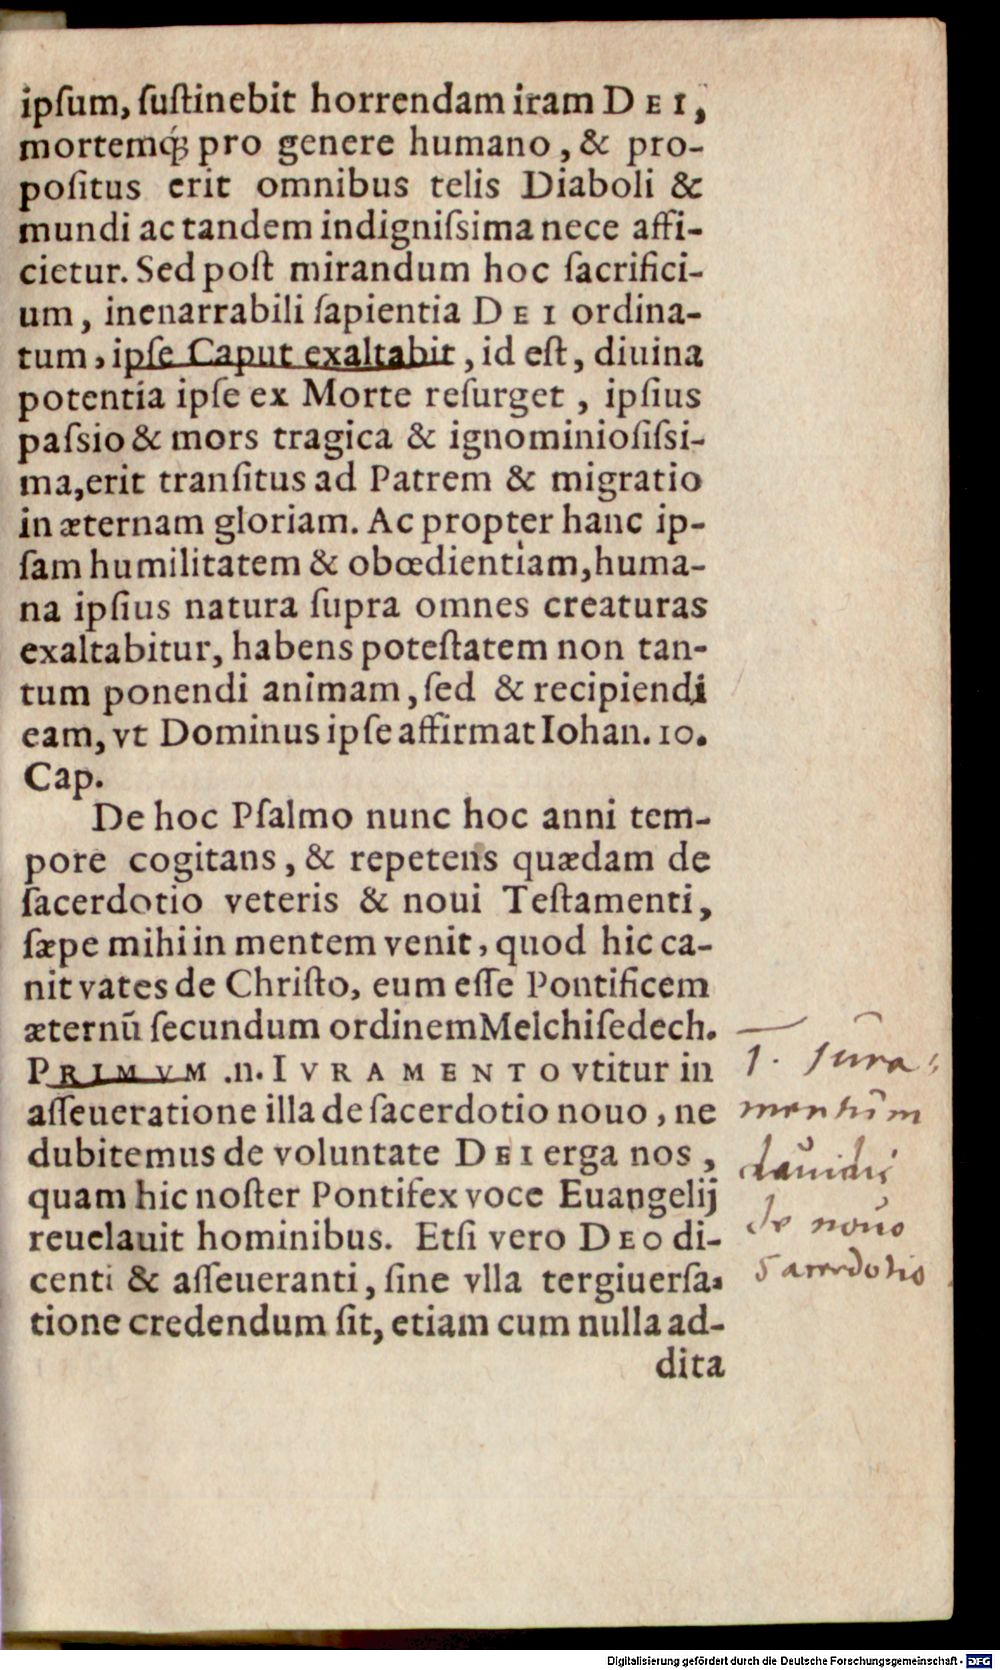 ipſum, ſuſtinebit horrendam iram DEI,
mortemq́ꝫ pro genere humano, & pro-
poſitus erit omnibus telis Diaboli &
mundi ac tandem indigniſsima nece affi-
cietur. Sed poſt mirandum hoc ſacrifici-
um, inenarrabili ſapientia DEI ordina-
tum, ipſe Caput exaltabit, id eſt, diuina
potentia ipſe ex Morte reſurget, ipſius
paſsio & mors tragica & ignominioſiſsi-
ma, erit tranſitus ad Patrem & migratio
in æternam gloriam. Ac propter hanc ip-
ſam humilitatem & obœdientiam, huma-
na ipſius natura ſupra omnes creaturas
exaltabitur, habens poteſtatem non tan-
tum ponendi animam, ſed & recipiendi
eam, vt Dominus ipſe affirmat Iohan. 10.
Cap.
De hoc Pſalmo nunc hoc anni tem-
pore cogitans, & repetens quædam de
ſacerdotio veteris & noui Teſtamenti,
ſæpe mihi in mentem venit, quod hic ca-
nit vates de Chriſto, eum eſſe Pontificem
æternū ſecundum ordinem Melchiſedech.
PRIMVM .n. IVRAMENTO vtitur in
aſſeueratione illa de ſacerdotio nouo, ne
dubitemus de voluntate DEI erga nos,
quam hic noſter Pontifex voce Euangelij
reuelauit hominibus. Etſi vero DEO di-
centi & aſſeueranti, ſine vlla tergiuerſa-
tione credendum ſit, etiam cum nulla ad-
dita
1. Jura-
mentum
dauidis
de nouo
Sacerdotio
Digitalisierung gefördert durch die Deutsche Forschungsgemeinschaft - DFG